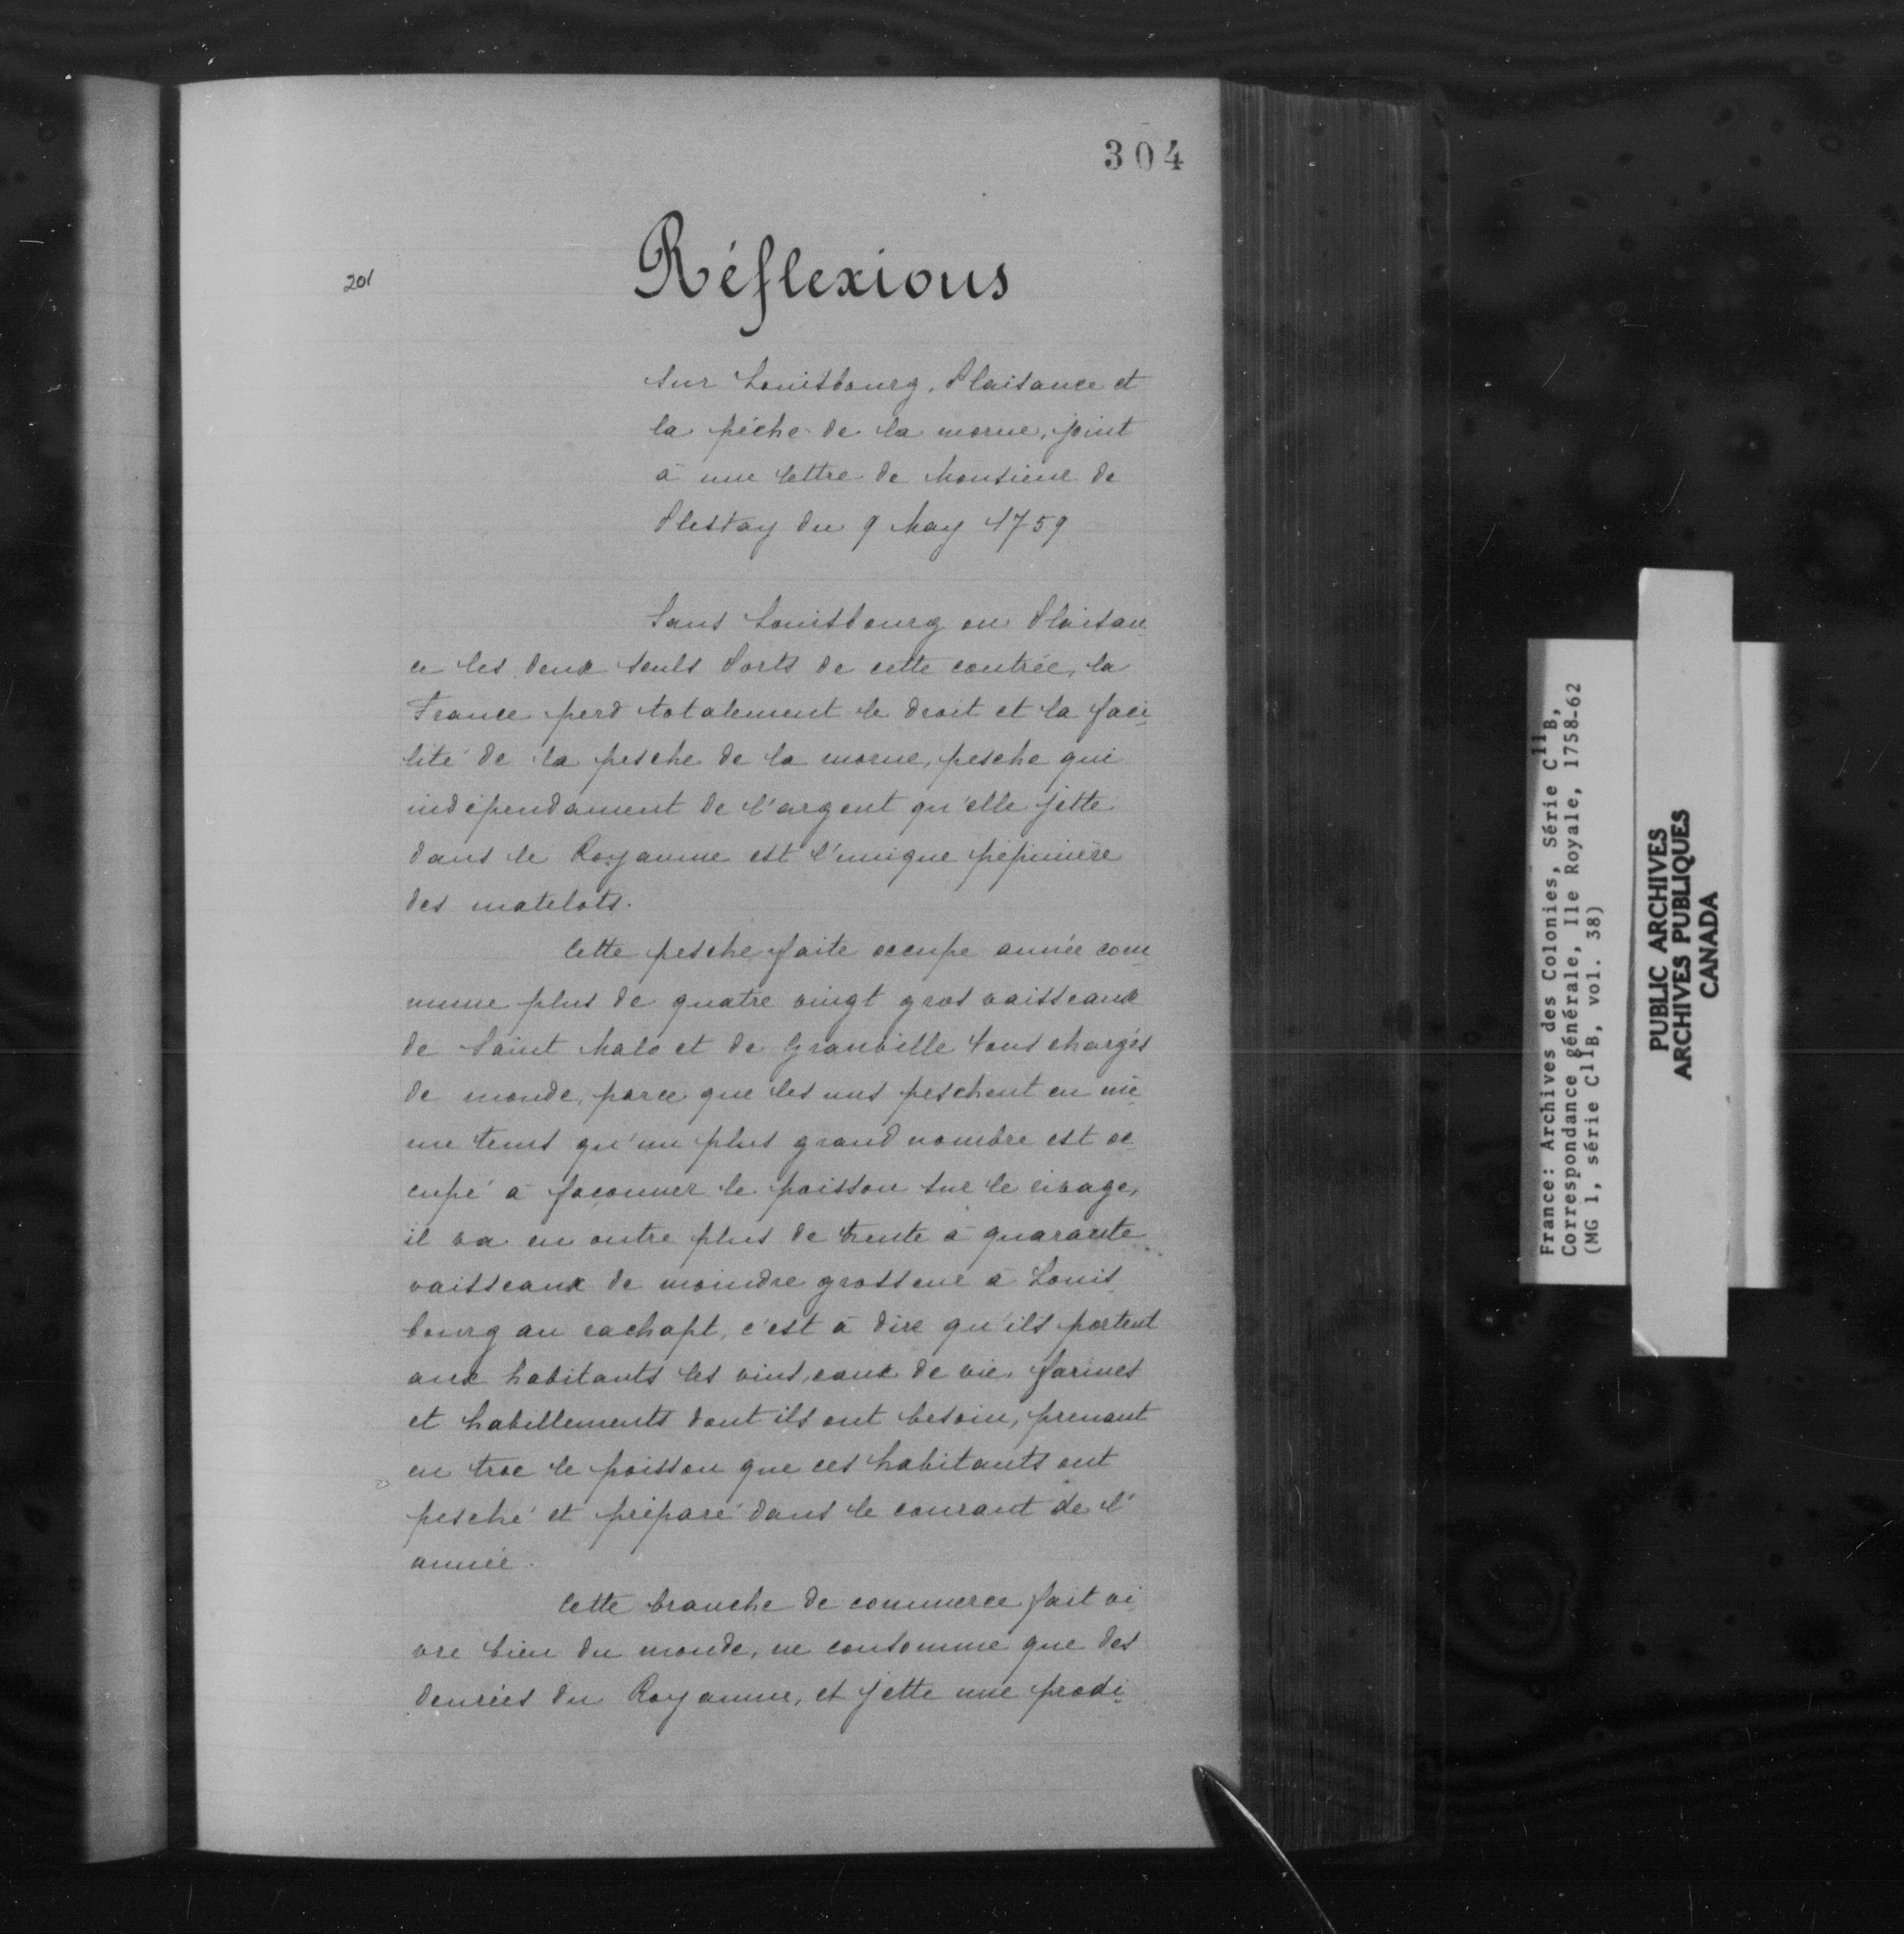 304
201
Réflexions
sur Louisbourg, Plaisance et
la pêche de la morue, joint
à une lettre de Monsieur de
du 9 May 1759
Sans Louisbourg ou Plaisan
ce les deux seuls Ports de cette contrée, la
France perd totalement le droit et la faci
lité de la pesche de la morue, pesche qui
indépendament de l'argent qu'elle jette
dans le Royaume est l'unique pépinière
des matelots.
Cette pesche faite occupe année com
mune plus de quatre vingt gros vaisseaux
de Saint Malo et de Granville tous chargés
de monde, parce que les uns peschent en mê
me tems qu'un plus grand nombre est oc
cupé à façonner le poisson sur le rivage,
il va en outre plus de trente à quarante
vaisseaux de moindre grosseur à Louis
bourg au rachapt, c'est à dire qu'ils portent
aux habitants les vins, eaux de vie, farines
et habillements dont ils ont besoin, prenant
en troc le poisson que ces habitants ont
pesché et préparé dans le courant de l'
année.
Cette branche de commerce fait vi
vre bien du monde, ne consomme que des
denrées du Royaume, et jette une prodi
France: Archives des Colonies, Série C11B,
Correspondance générale, Ile Royale, 1758-62
(MG 1, série C11B, vol. 38)
PUBLIC ARCHIVES
ARCHIVES PUBLIQUES
CANADA